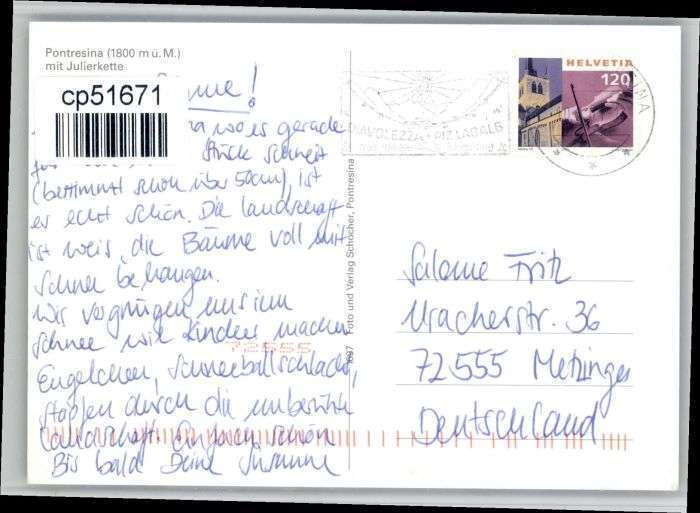 Pontresina (1800 m ü. M.)
mit Julierkette
cp51671
HELVETIA
120
DIAVOLEZZA + PIZ LAGALB
wo es gerade
Stück schneit
(bestimmt schon über 50cm), ist
es echt schön. Die Landschaft
ist weis, die Bäume voll mit
Schnee behangen.
Wir vergnügen uns im
Schnee wie Kinder, machen
Engelchen, Schneeballschlacht,
stapfen durch die unberührte
Landschaft. Einfach schön
Bis bald Deine Susanne
72555
Foto und Verlag Schocher, Pontresina
Salome Fritz
Uracherstr. 36
72555 Metzingen
Deutschland